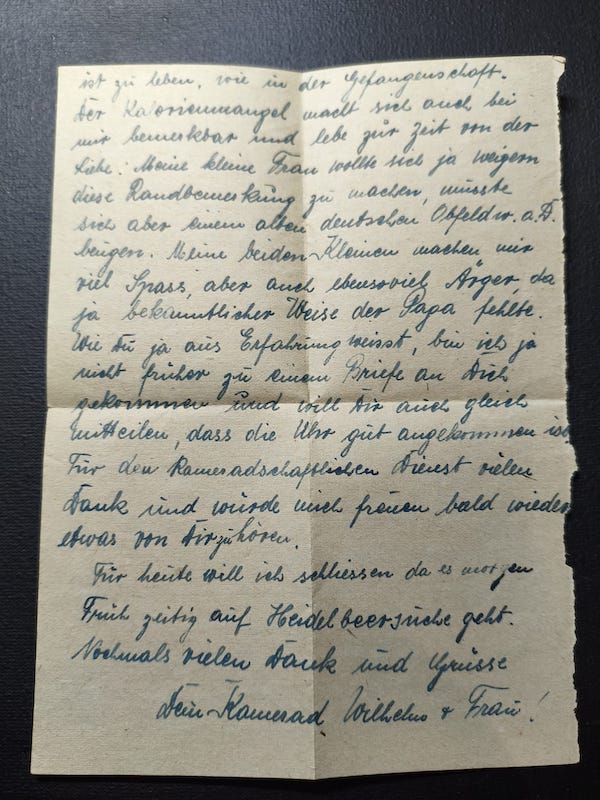 ist zu leben, wie in der Gefangenschaft.
Der Kalorienmangel macht sich auch bei
mir bemerkbar und lebe zur Zeit von der
Liebe. Meine kleine Frau wollte sich ja weigern
diese Randbemerkung zu machen, musste
sich aber einem alten deutschen Obfeldw. a.D.
beugen. Meine beiden Kleinen machen mir
viel Spass, aber auch ebensoviel Ärger, da
ja bekanntlicher Weise der Papa fehlte.
Wie Du ja aus Erfahrung weisst, bin ich ja
nicht früher zu einem Briefe an Dich
gekommen und will Dir auch gleich
mitteilen, dass die Uhr gut angekommen ist.
Für den kameradschaftlichen Dienst vielen
Dank und würde mich freuen bald wieder
etwas von Dir zu hören.
Für heute will ich schliessen da es morgen
Früh zeitig auf Heidelbeersuche geht.
Nochmals vielen Dank und Grüsse
Dein Kamerad Wilhelm + Frau!